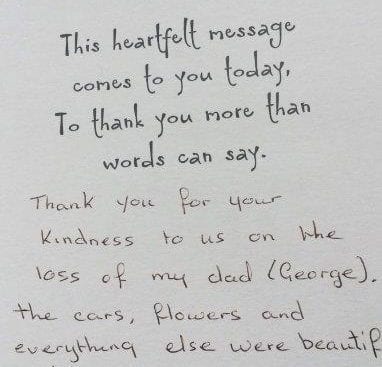 This heartfelt message
comes to you today,
To thank you more than
words can say.
Thank you for your
Kindness to us on the
loss of my dad (George).
the cars, flowers and
everything else were beautif